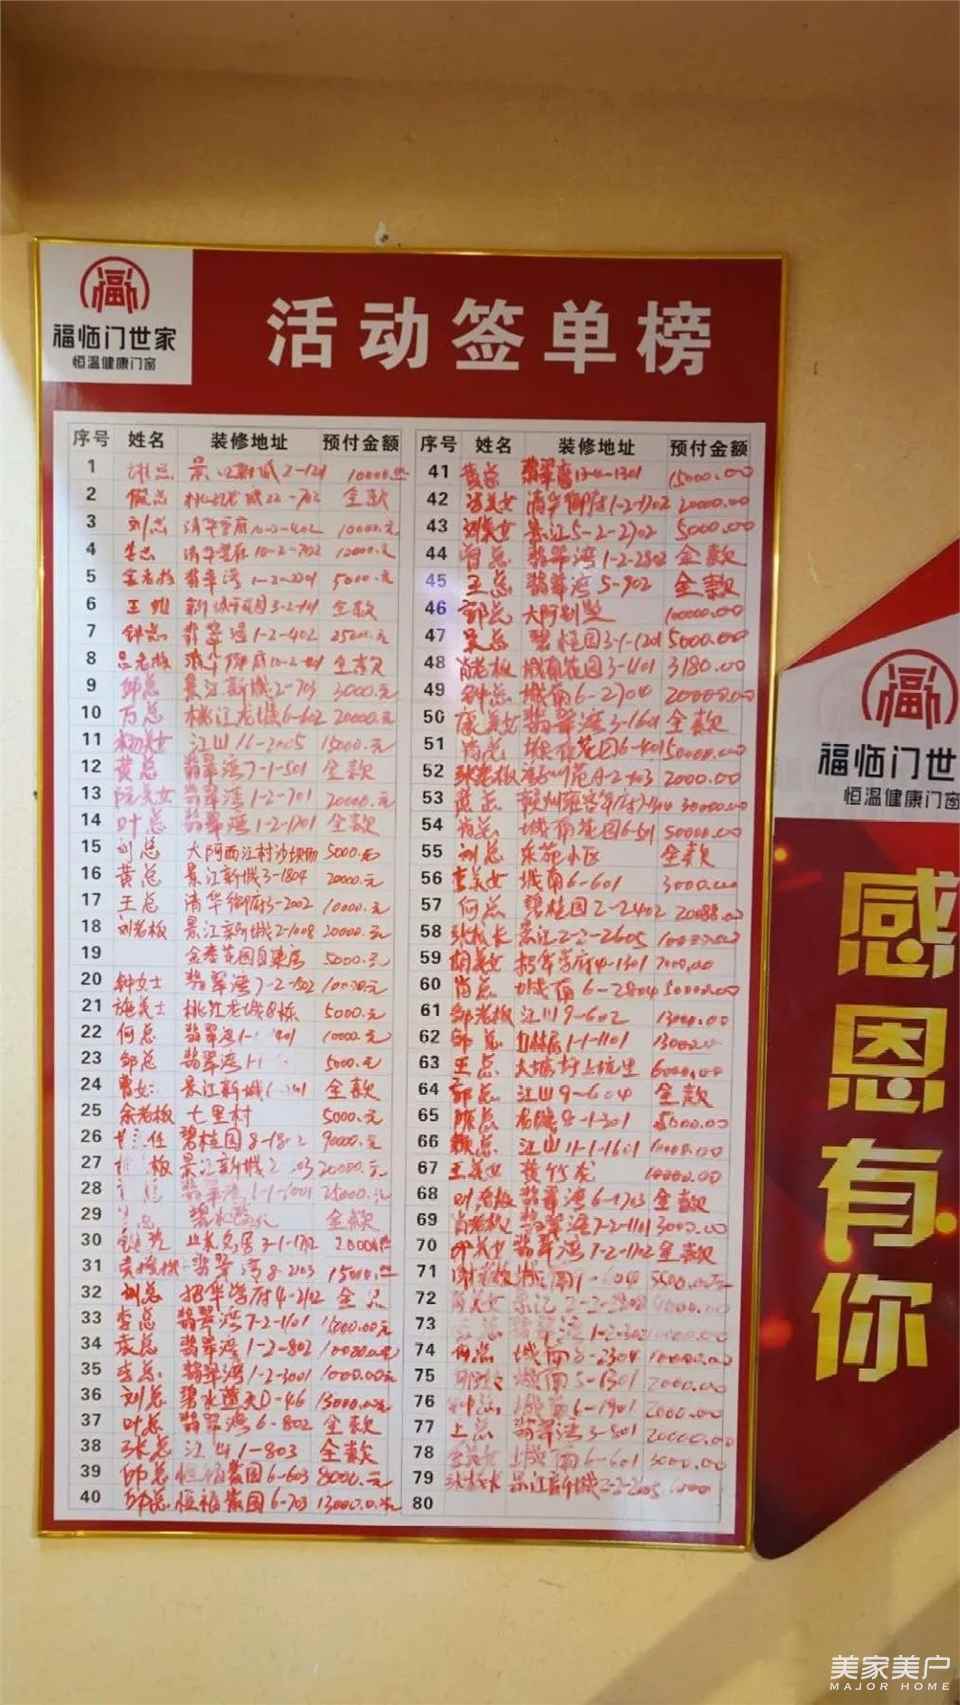 福临门世家
恒温健康门窗
活动签单榜
序号 姓名 装修地址 预付金额
1 景江新城2-1201 10000.
2 桃江龙城22-702 全款
3 刘总 清华御府10-2-402 10000.元
4 李总 清华 10-2-702 12000.元
5 老板 翡翠湾1-2-2201 5000.元
6 王 新城花园3-2-101 全款
7 钟总 翡翠湾1-2-402 25000.元
8 吕老板 清华御府10-2- 全款
9 邹总 景江新城2-703 3000.元
10 万总 桃江龙城6-602 20000.元
11 杨美女 江山11-2005 15000.元
12 黄总 翡翠湾7-1-501 全款
13 阮美女 翡翠湾1-2-701 20000.元
14 叶总 翡翠湾1-2-1701 全款
15 刘总 大阿西江村沙坝 5000.元
16 黄总 景江新城3-1804 20000.元
17 王总 清华御府3-2002 10000.元
18 刘老板 景江新城2-1008 20000.元
19 金春花园自建房 5000.元
20 钟女士 翡翠湾7-2-502 10000.元
21 施美士 桃江龙城8栋 5000.元
22 何总 翡翠湾1- 01 10000.元
23 邹总 翡翠湾1-1 5000.元
24 曹女 景江新城 01 全款
25 余老板 七里村 5000.元
26 任 碧桂园8-1802 90000.元
27 板 景江新城2 03 20000.元
28 总 翡翠湾1-1-2001 25000.元
29 总 碧水蓝天 全款
30 名居3-1-1702 20000
31 翡翠湾8-2103 15000.
32 刘总 招华学府4-2102 全
33 李总 翡翠湾7-2-1101 15000.00元
34 袁总 翡翠湾1-2-802 10000.00元
35 李总 翡翠湾1-2-3001 10000.00元
36 刘总 碧水蓝天D-46 13000.00元
37 叶总 翡翠湾6-802 全款
38 张总 江山1-803 全款
39 帅总 恒福花园6-603 8000.元
40 钟总 恒福花园6-703 13000.0元
序号 姓名 装修地址 预付金额
41 黄总 翡翠湾13-4-1301 15000.00
42 美女 清华御府1-2-1702 20000.00
43 刘美女 景江5-2-2702 5000.00
44 曾总 翡翠湾1-2-2802 全款
45 王总 翡翠湾5-902 全款
46 郭总 大阿别墅 100000.00
47 吴总 碧桂园3-1-1201 5000.00
48 肖老板 城南花园3-1101 3180.00
49 钟总 城南6-2704 200000.00
50 康美女 翡翠湾3-1601 全款
51 肖总 花园6-401 50000.00
52 张老板 A-2-403 2000.00
53 黄总 赣州 30000.00
54 肖总 城南花园6-501 50000.00
55 刘总 东苑小区 全款
56 李美女 城南6-601 3000.00
57 何总 碧桂园2-2402 20088.00
58 张校长 景江2-2-2605 10000.00
59 胡美女 招华学府4-1301 7000.00
60 肖总 城南6-2804 50000.00
61 邹老板 江山9-602 13000.00
62 邹总 1-1-1101 13000.00
63 王总 大塘村上坑里 6000.00
64 郭总 江山9-604 全款
65 陈总 8-1301 5000.00
66 赖总 江山11-1-1601 10000.00
67 王美女 黄竹龙 10000.00
68 刘老板 翡翠湾6-1703 全款
69 肖老板 翡翠湾7-2-1101 3000.00
70 邓美女 翡翠湾1-2-1702 全款
71 谢老板 城南1-604 5500.00
72 美女 景江2-2-2802 000.00
73 总 翡翠湾1-2-302 0000.00
74 何总 城南8-2304 10000.00
75 城南5-1301 2000.00
76 钟总 城南6-1901 2000.00
77 上总 翡翠湾3-801 20000.00
78 美女 城南6-601 3000.00
79 张校长 景江新城2-2-2605 000
80
福临门世
恒温健康门窗
感恩有你
美家美户
MAJOR HOME